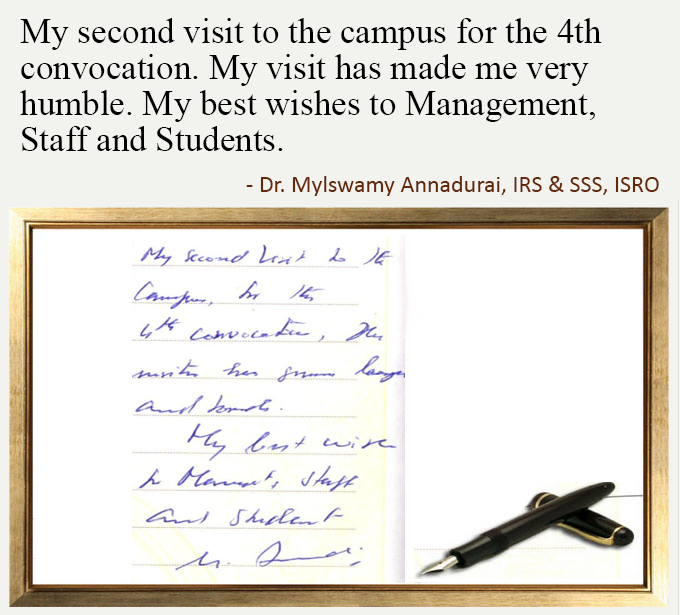 My second visit to the campus for the 4th
convocation. My visit has made me very
humble. My best wishes to Management,
Staff and Students.
- Dr. Mylswamy Annadurai, IRS & SSS, ISRO
My second visit to the
Campus, for the
4th convocation, The
has grown larger
and
My best wish
to Manamet, Staff
and Student